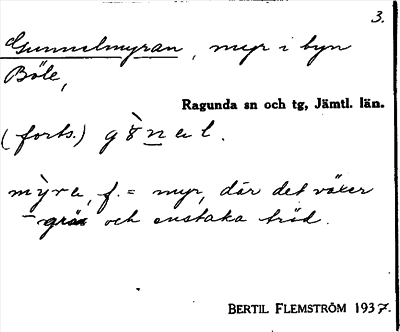 3.
Gunnelmyran, myr i byn
Böle,
Ragunda sn och tg, Jämtl. län.
(forts.)
mỳra, f. = myr, där det växer
gräs och enstaka träd.
BERTIL FLEMSTRÖM 1937.